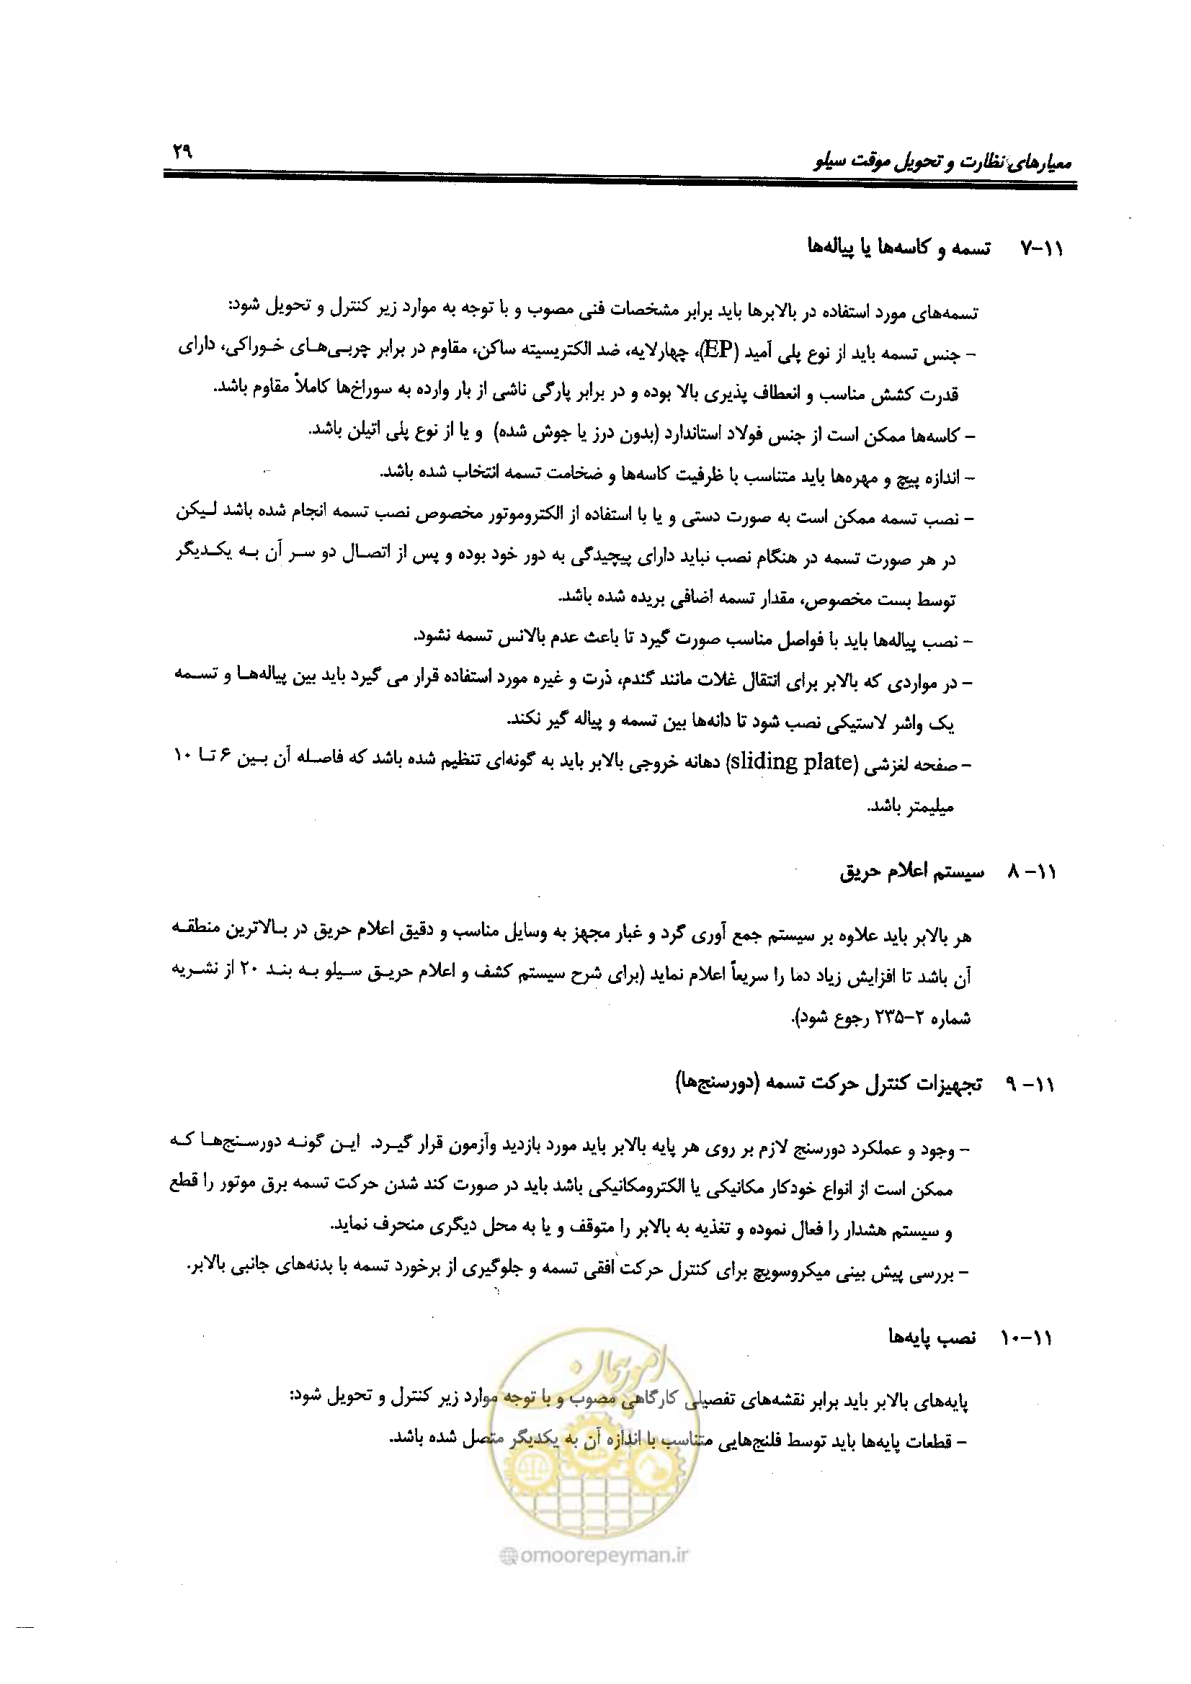 معیارهای نظارت و تحویل موقت سیلو ۲۹
۷-۱۱ تسمه و کاسه‌ها یا پیاله‌ها
تسمه‌های مورد استفاده در بالابرها باید برابر مشخصات فنی مصوب و با توجه به موارد زیر کنترل و تحویل شود:
- جنس تسمه باید از نوع پلی آمید (EP)، چهارلایه، ضد الکتریسیته ساکن، مقاوم در برابر چربی‌های خوراکی، دارای
قدرت کشش مناسب و انعطاف پذیری بالا بوده و در برابر پارگی ناشی از بار وارده به سوراخ‌ها کاملاً مقاوم باشد.
- کاسه‌ها ممکن است از جنس فولاد استاندارد (بدون درز یا جوش شده) و یا از نوع پلی اتیلن باشد.
- اندازه پیچ و مهره‌ها باید متناسب با ظرفیت کاسه‌ها و ضخامت تسمه انتخاب شده باشد.
- نصب تسمه ممکن است به صورت دستی و یا با استفاده از الکتروموتور مخصوص نصب تسمه انجام شده باشد لیکن
در هر صورت تسمه در هنگام نصب نباید دارای پیچیدگی به دور خود بوده و پس از اتصال دو سر آن به یکدیگر
توسط بست مخصوص، مقدار تسمه اضافی بریده شده باشد.
- نصب پیاله‌ها باید با فواصل مناسب صورت گیرد تا باعث عدم بالانس تسمه نشود.
- در مواردی که بالابر برای انتقال غلات مانند گندم، ذرت و غیره مورد استفاده قرار می گیرد باید بین پیاله‌ها و تسمه
یک واشر لاستیکی نصب شود تا دانه‌ها بین تسمه و پیاله گیر نکند.
- صفحه لغزشی (sliding plate) دهانه خروجی بالابر باید به گونه‌ای تنظیم شده باشد که فاصله آن بین ۶ تا ۱۰
میلیمتر باشد.
۸ -۱۱ سیستم اعلام حریق
هر بالابر باید علاوه بر سیستم جمع آوری گرد و غبار مجهز به وسایل مناسب و دقیق اعلام حریق در بالاترین منطقه
آن باشد تا افزایش زیاد دما را سریعاً اعلام نماید (برای شرح سیستم کشف و اعلام حریق سیلو به بند ۲۰ از نشریه
شماره ۲-۲۳۵ رجوع شود).
۹ -۱۱ تجهیزات کنترل حرکت تسمه (دورسنج‌ها)
- وجود و عملکرد دورسنج لازم بر روی هر پایه بالابر باید مورد بازدید وآزمون قرار گیرد. این گونه دورسنج‌ها که
ممکن است از انواع خودکار مکانیکی یا الکترومکانیکی باشد باید در صورت کند شدن حرکت تسمه برق موتور را قطع
و سیستم هشدار را فعال نموده و تغذیه به بالابر را متوقف و یا به محل دیگری منحرف نماید.
- بررسی پیش بینی میکروسویچ برای کنترل حرکت افقی تسمه و جلوگیری از برخورد تسمه با بدنه‌های جانبی بالابر.
۱۰-۱۱ نصب پایه‌ها
امور پیمان
پایه‌های بالابر باید برابر نقشه‌های تفصیلی کارگاهی مصوب و با توجه موارد زیر کنترل و تحویل شود:
- قطعات پایه‌ها باید توسط فلنج‌هایی متناسب با اندازه آن به یکدیگر متصل شده باشد.
@omoorepeyman.ir